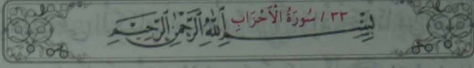 ٣٣ / سُورَةُ الْأَحْزَابِ
بِسْمِ اللَّهِ الرَّحْمَٰنِ الرَّحِيمِ